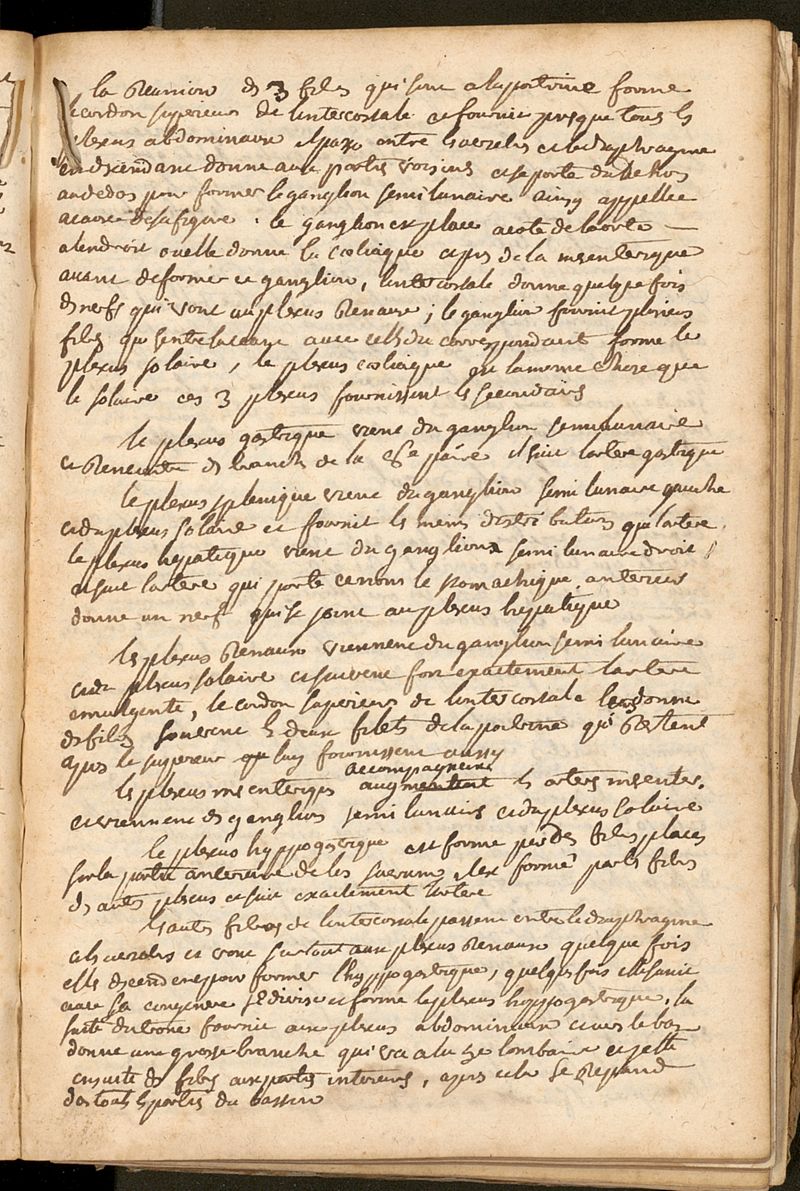 la Reunion de 3 files qui sont a la poitrine forme
le cordon superieur de lintercostale et fournit presque tous les
plexus abdominaux il passe entre les vertebres et le diaphragme
en descendant donne aux parties voisines et se porte du dehors
au dedos pour former le ganglion semi lunaire ainsy appellee
acause de sa figure . le ganglion est place a coté de laorte
a lendroit ou elle donne la coeliaque et puis de la mesenterique
avant de former ce ganglion, lintercostale donne quelque fois
des nerfs qui vont au plexus Renaux ; le ganglion fournit plusieurs
files qui sentrelaceant avec celles du correspondant forme le
plexus solaire , le plexus coeliaque ou la meme chose que
le solaire ces 3 plexus fournissent les secondaires
le plexus gastrique vient du ganglion semilunaire
et Rencontre des branches de la 8e paire il suit lartere gastrique
le plexus splenique vient du ganglion semi lunaire gauche
et du plexus solaire et fournit les memes distributions que lartere,
le plexus hepatique vient du ganglion semi lunaire droit,
et suit lartere qui porte ce nom le stomachique anterieur
donne un nerf qui se joint au plexus hepatique
les plexus Renaux viennent du ganglion semi lunaire
et du plexus solaire et suivent fort exactement lartere
emulgente, le cordon superieur de lintercostale leur donne
des files souvent les deux filets de la poitrine qui Restent
apres le superieur luy fournissent aussy
les plexus mesenteriques accompagnent les arteres mesenter.
et viennent des ganglions semi lunaires et du plexus solaire
le plexus hyppogastrique est forme par des files places
sur la partie anterieure de los sacrum, il est formé par les files
des autres plexus et suit exactement lartere
les autres files de lintercostale passent entre le diaphragme
et les vertebres et vont surtout aux plexus Renaux quelque fois
elles descendent pour former lhyppogastrique, quelquefois elle sunit
avec sa congenere se divise et forme le plexus hyppogastrique, la
suite du trone fournit aux plexus abdominaux et vers le bas
donne une grosse branche qui va a la 3e lombaire et jette
ensuite des files aux parties interieures, apres cela se Repand
da toutes les parties du bassin